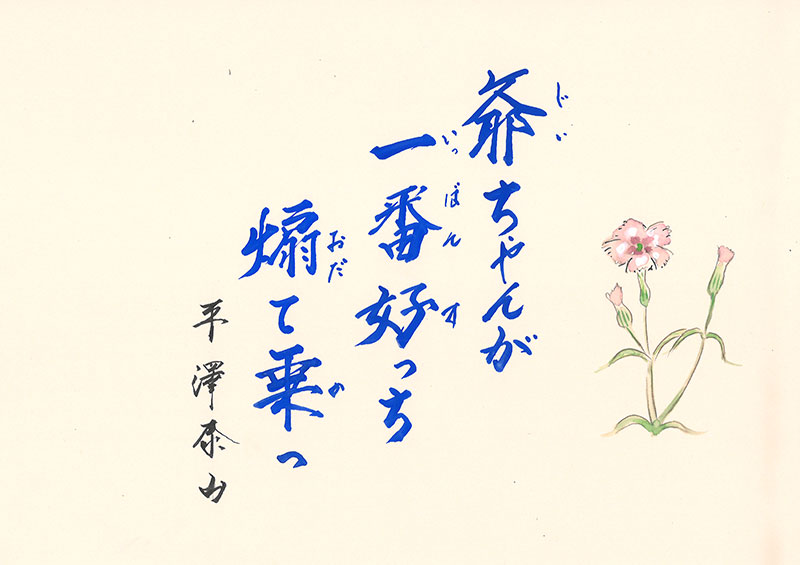 爺ちゃんが
じい
一番好っち
いっばんす
煽て乗っ
おだの
平澤泰山